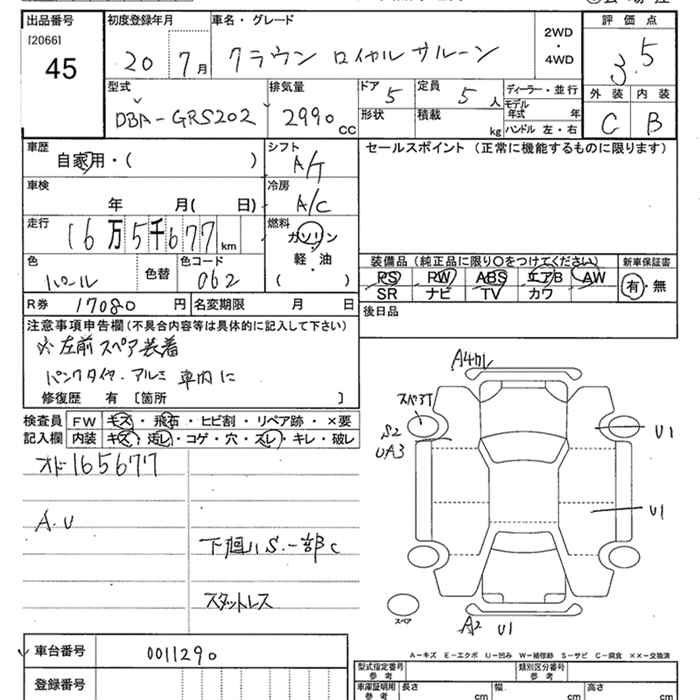 出品番号
[2066]
45
初度登録年月
20 7月
車名・グレード
クラウン ロイヤルサルーン
2WD
・
4WD
評価点
3.5
外装 内装
C B
型式
DBA-GRS202
排気量
2990 cc
ドア 5
定員 5 人
形状
積載 kg
ディーラー・並行
モデル年式 年
ハンドル 左・右
車歴
自家用・( )
シフト
A/T
車検
年 月( 日)
冷房
A/C
走行
16万5千677km
燃料
ガソリン
・
軽・油
( )
色
パール
色替
色コード
062
R券 17080円
名変期限 月 日
セールスポイント (正常に機能するものに限ります)
装備品 (純正品に限り○をつけてください)
PS PW ABS エアB AW
SR ナビ TV カワ
新車保証書
有・無
後日品
注意事項申告欄(不具合内容等は具体的に記入して下さい)
※左前スペア装着
パンクタイヤ・アルミ 車内に
修復歴 有 [箇所 ]
検査員記入欄
FW キズ・飛石・ヒビ割・リペア跡・×要
内装 キズ・汚レ・コゲ・穴・スレ・キレ・破レ
オド165677
A.U
下廻りS.一部C
スタットレス
A4カレ
スペアT
S2
UA3
U1
U1
スペア
A2 U1
A-キズ E-エクボ U-凹み W-補修跡 S-サビ C-腐食 ××-交換済
車台番号
0011290
登録番号
型式指定番号
参考
類別区分番号
参考
車庫証明用
参考
長さ cm
幅 cm
高さ cm